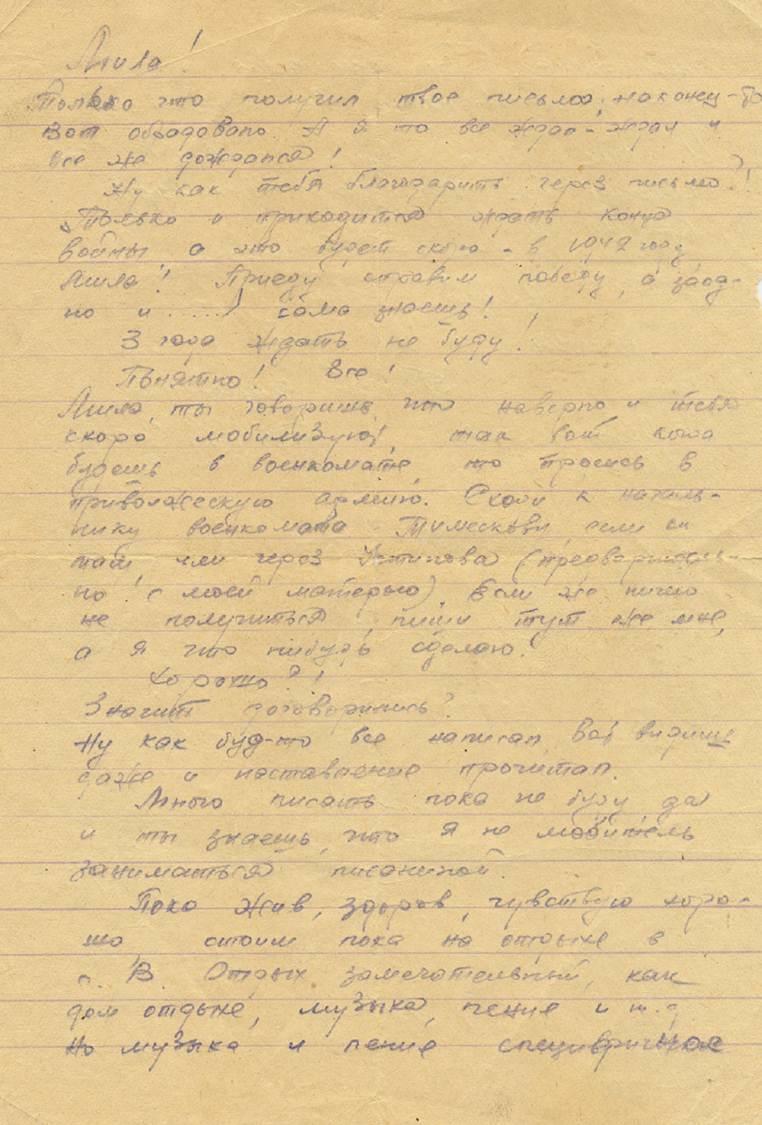 Мила!
Только что получил твое письмо, наконец-то
Вот обрадовало. А я то все ждал-ждал и
все же дождался!
Ну как тебя благодарить через письмо?!
Только и приходится ждать конца
войны а это будет скоро - в 1942 году
Мила! Приеду справим победу, а заод-
но и ......! сама знаешь!
3 года ждать не буду!
Понятно! Все!
Мила, ты говоришь, что наверно и тебя
скоро мобилизуют, так вот когда
будешь в военкомате, то просись в
приволжескую армию. Сходи к началь-
нику военкомата если он
там или через Устинова (предваритель-
но с моей матерью) Если же ничего
не получиться, пиши тут же мне,
а я что нибудь сделаю.
Хорошо?!
Значит договорились?
Ну как буд-то все написал, Вот видишь
даже и наставление прочитал.
Много писать пока не буду да
и ты знаешь, что я не любитель
заниматься писаниной.
Пока жив, здоров, чувствую хоро-
шо стоим пока на отдыхе в
с. В. Отдых замечательный, как
дом отдыха, музыка, пение и т.д
Но музыка и пение